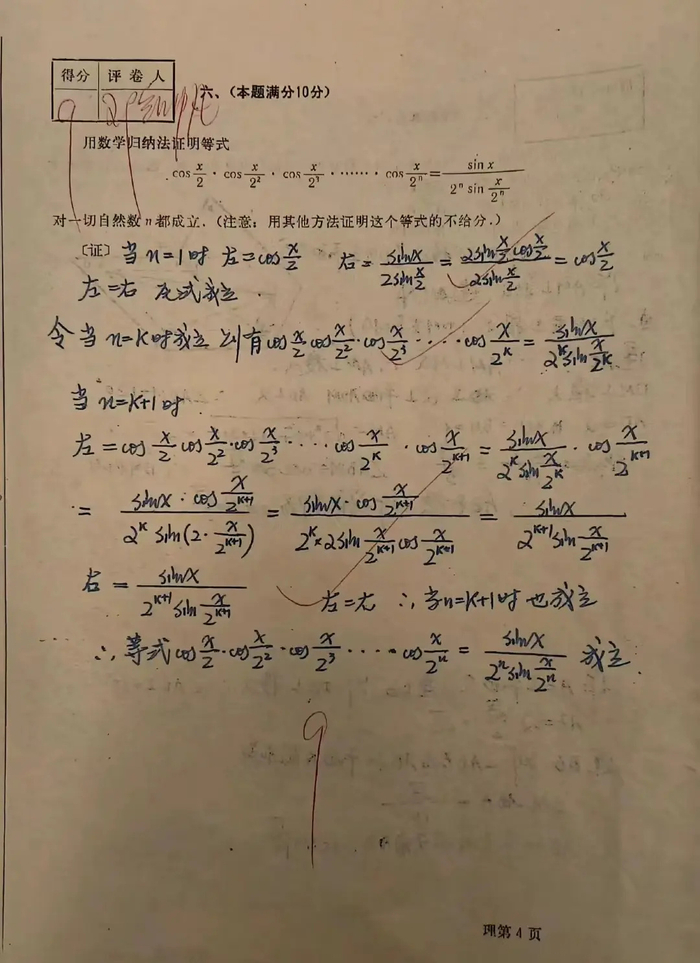 得分 评卷人
9
六、（本题满分10分）
用数学归纳法证明等式
cos x/2 · cos x/2² · cos x/2³ · …… · cos x/2ⁿ = sin x / (2ⁿ sin x/2ⁿ)
对一切自然数n都成立.（注意：用其他方法证明这个等式的不给分.）
〔证〕当n=1时 左=cos x/2 右= sinx / (2sin x/2) = 2sin x/2 cos x/2 / (2sin x/2) = cos x/2
左=右 成立.
令当n=K时成立 则有 cos x/2 cos x/2² · cos x/2³ ···· cos x/2ᴷ = sinx / (2ᴷ sin x/2ᴷ)
当n=K+1时
左=cos x/2 cos x/2² · cos x/2³ ···· cos x/2ᴷ · cos x/2ᴷ⁺¹ = sinx / (2ᴷ sin x/2ᴷ) · cos x/2ᴷ⁺¹
= sinx · cos x/2ᴷ⁺¹ / (2ᴷ sin(2· x/2ᴷ⁺¹)) = sinx · cos x/2ᴷ⁺¹ / (2ᴷ×2sin x/2ᴷ⁺¹ cos x/2ᴷ⁺¹) = sinx / (2ᴷ⁺¹ sin x/2ᴷ⁺¹)
右 = sinx / (2ᴷ⁺¹ sin x/2ᴷ⁺¹) 左=右 ∴当n=K+1时也成立
∴等式 cos x/2 · cos x/2² · cos x/2³ ····· cos x/2ⁿ = sinx / (2ⁿ sin x/2ⁿ) 成立.
9
理第4页